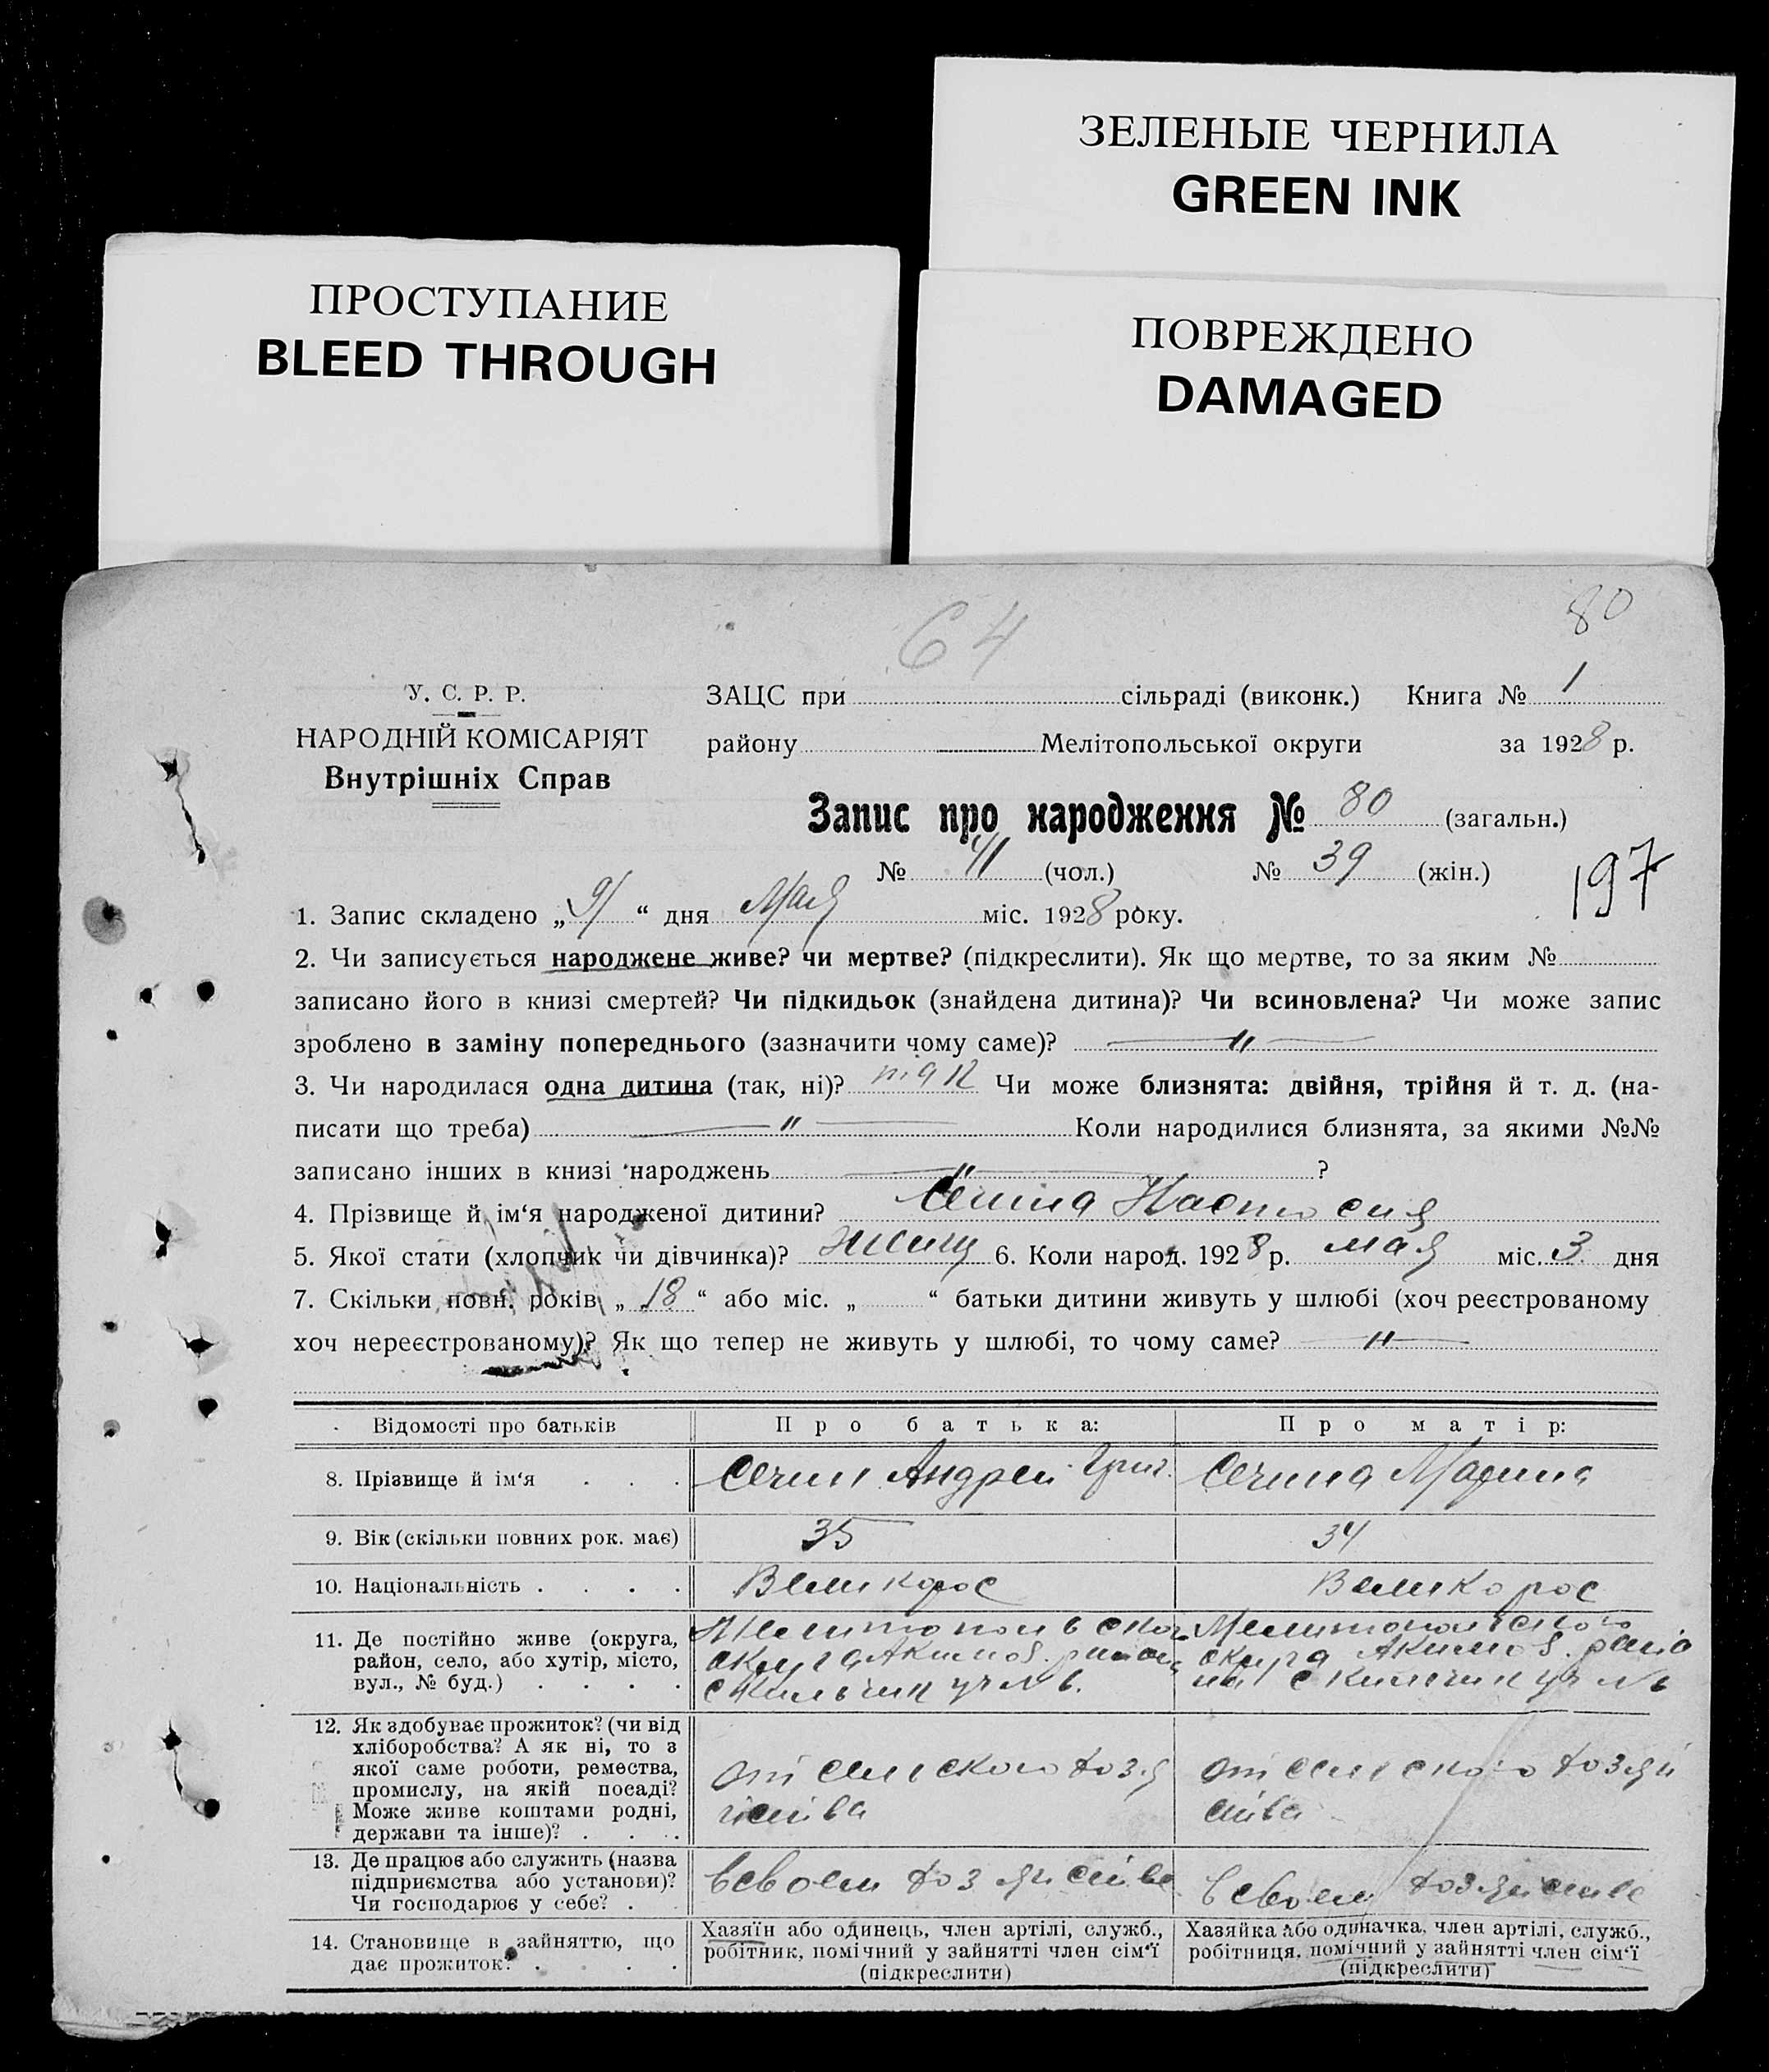 ЗЕЛЕНЫЕ ЧЕРНИЛА
GREEN INK
ПРОСТУПАНИЕ
BLEED THROUGH
ПОВРЕЖДЕНО
DAMAGED
80
64
У. С. Р. Р.
НАРОДНІЙ КОМІСАРІЯТ
Внутрішніх Справ
ЗАЦС при сільраді (виконк.) Книга № 1
району Мелітопольської округи за 1928 р.
Запис про народження № 80 (загальн.)
№ 41 (чол.) № 39 (жін.)
197
1. Запис складено „9“ дня Мая міс. 1928 року.
2. Чи записується народжене живе? чи мертве? (підкреслити). Як що мертве, то за яким №
записано його в книзі смертей? Чи підкидьок (знайдена дитина)? Чи всиновлена? Чи може запис
зроблено в заміну попереднього (зазначити чому саме)? — " —
3. Чи народилася одна дитина (так, ні)? так Чи може близнята: двійня, трійня й т. д. (на-
писати що треба) — " — Коли народилися близнята, за якими №№
записано інших в книзі народжень — " — ?
4. Прізвище й ім‘я народженої дитини? Сечина Настосия
5. Якої стати (хлопчик чи дівчинка)? женщ 6. Коли народ. 1928 р. мая міс. 3 дня
7. Скільки повн. років „ 18 “ або міс. „ “ батьки дитини живуть у шлюбі (хоч реєстрованому
хоч нереєстрованому)? Як що тепер не живуть у шлюбі, то чому саме? — " —
Відомості про батьків Про батька: Про матір:
8. Прізвище й ім‘я . . . Сечин Андрей Григ. Сечина Марина
9. Вік (скільки повних рок. має) 35 34
10. Національність . . . . Великорос Великорос
11. Де постійно живе (округа,
район, село, або хутір, місто,
вул., № буд.) . . . .
Мелитопольског
округа Акимов. район
с уч № 6.
Мелитопольского
округа Акимов. райо
на с уч № 6
12. Як здобуває прожиток? (чи від
хліборобства? А як ні, то з
якої саме роботи, ремества,
промислу, на якій посаді?
Може живе коштами родні,
держави та інше)? . . .
от сельского хозя
йства
от сельского хозяй
ства
13. Де працює або служить (назва
підприємства або установи)?
Чи господарює у себе? .
в своем хозяйстве
в своем хозяйстве
14. Становище в зайняттю, що
дає прожиток? . . .
Хазяїн або одинець, член артілі, служб.,
робітник, помічний у зайнятті член сім‘ї
(підкреслити)
Хазяйка або одиначка, член артілі, служб.,
робітниця, помічний у зайнятті член сім‘ї
(підкреслити)